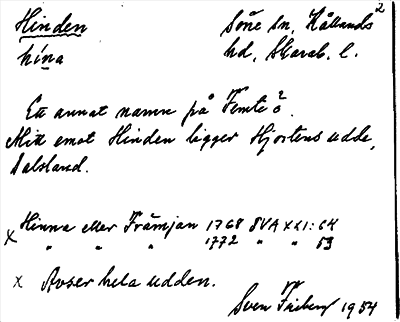 Hinden Söne sn. Kållands 2
hína hd, Skarab. l.
Ett annat namn på Femte ö?
Mitt emot Hinden ligger Hjortens udde,
Dalsland.
x Hinna eller Främjan 1768 SVA XXI: 64
" " " 1772 " " 53
x Avser hela udden.
Sven Friberg 1954